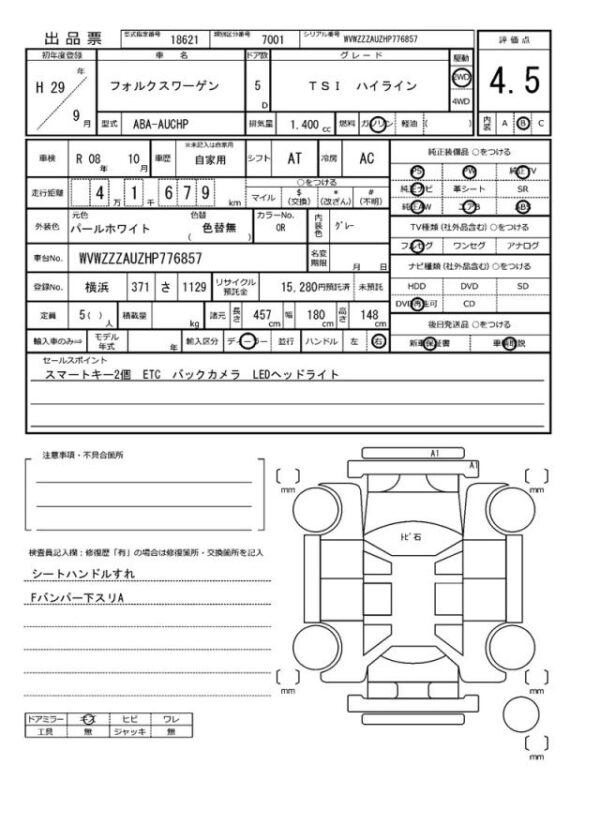 出品票 型式指定番号 18621 類別区分番号 7001 シリアル番号 WVWZZZAUZHP776857 評価点
初年度登録 車名 ドア数 グレード 駆動
H 29 年 フォルクスワーゲン 5 D TSI ハイライン 2WD 4WD 4.5
9 月 型式 ABA-AUCHP 排気量 1,400 cc 燃料 ガソリン 軽油 ( ) 内装 A B C
車検 R 08 年 10 月 車歴 ※未記入は自家用 自家用 シフト AT 冷房 AC 純正装備品 ○をつける
PS PW 純正TV
走行距離 4 万 1 千 6 7 9 km ○をつける マイル $ (交換) * (改ざん) # (不明) 純正ナビ 革シート SR
純正AW エアB ABS
外装色 元色 パールホワイト 色替 ( 色替無 ) カラーNo. 0R 内装色 グレー TV種類(社外品含む)○をつける
フルセグ ワンセグ アナログ
車台No. WVWZZZAUZHP776857 名変期限 月 日 ナビ種類(社外品含む)○をつける
登録No. 横浜 371 さ 1129 リサイクル預託金 15,280円預託済 未預託 HDD DVD SD
DVD再生可 CD
定員 5 ( ) 人 積載量 kg 諸元 長さ 457 cm 幅 180 cm 高さ 148 cm 後日発送品 ○をつける
輸入車のみ⇒ モデル年式 年 輸入区分 ディーラー 並行 ハンドル 左 右 新車保証書 車輌取説
セールスポイント
スマートキー2個 ETC バックカメラ LEDヘッドライト
注意事項・不具合箇所
検査員記入欄:修復歴「有」の場合は修復箇所・交換箇所を記入
シートハンドルすれ
Fバンパー下スリA
ドアミラー キズ ヒビ ワレ
工具 無 ジャッキ 無
A1
A1
( ) mm
( ) mm
トビ石
( ) mm
( ) mm
( ) mm